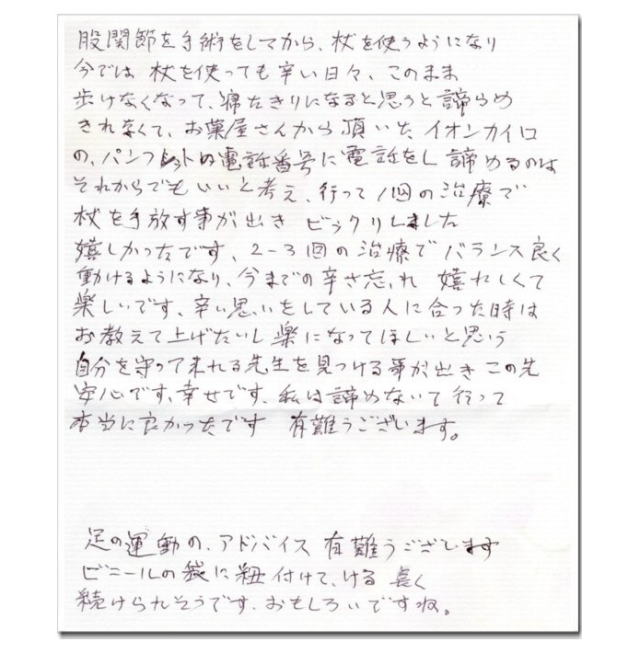 股関節を手術をしてから、杖を使うようになり
今では杖を使っても辛い日々、このまま
歩けなくなって、寝たきりになると思うと諦らめ
きれなくて、お薬屋さんから頂いた イオンカイロ
の、パンフレットの電話番号に電話をし 諦めるのは
それからでもいいと考え、行って1回の治療で
杖を手放す事が出き ビックリしました
嬉しかったです、2-3回の治療でバランス良く
動けるようになり、今までの辛さ忘れ 嬉れしくて
楽しいです、辛い思いをしている人に合った時は
お教えて上げたいし 楽になってほしいと思う
自分を守って来れる先生を見つける事が出き この先
安心です、幸せです、私は諦めないで 行って
本当に良かったです 有難うございます。
足の運動の、アドバイス 有難うございます
ビニールの袋に紐付けて、ける 長く
続けられそうです、おもしろいですね。